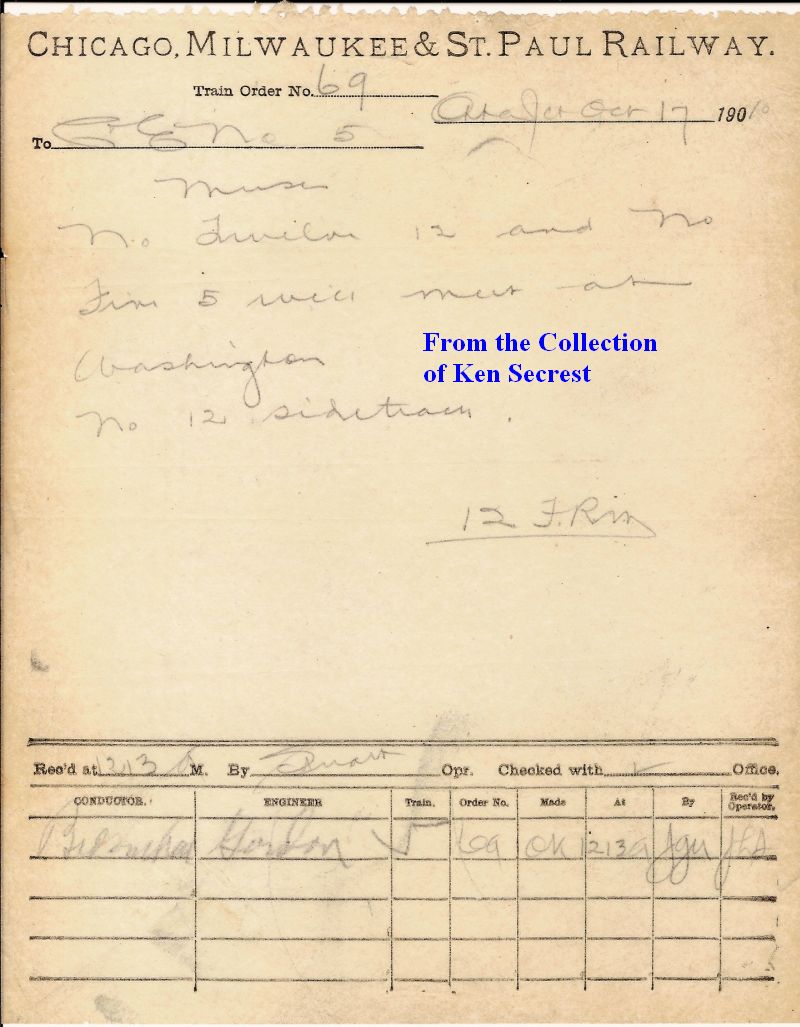 CHICAGO, MILWAUKEE & ST. PAUL RAILWAY.
Train Order No. 69
Oct 17 190
To C & E No 5
No 12 and No
Five 5 will meet at
From the Collection
Washington
of Ken Secrest
No 12 sidetrack.
12
Rec'd at 1213 a M. By Opr. Checked with Office.
CONDUCTOR. ENGINEER Train. Order No. Made At By Rec'd by Operator.
Gordon 5 69 OK 1213a